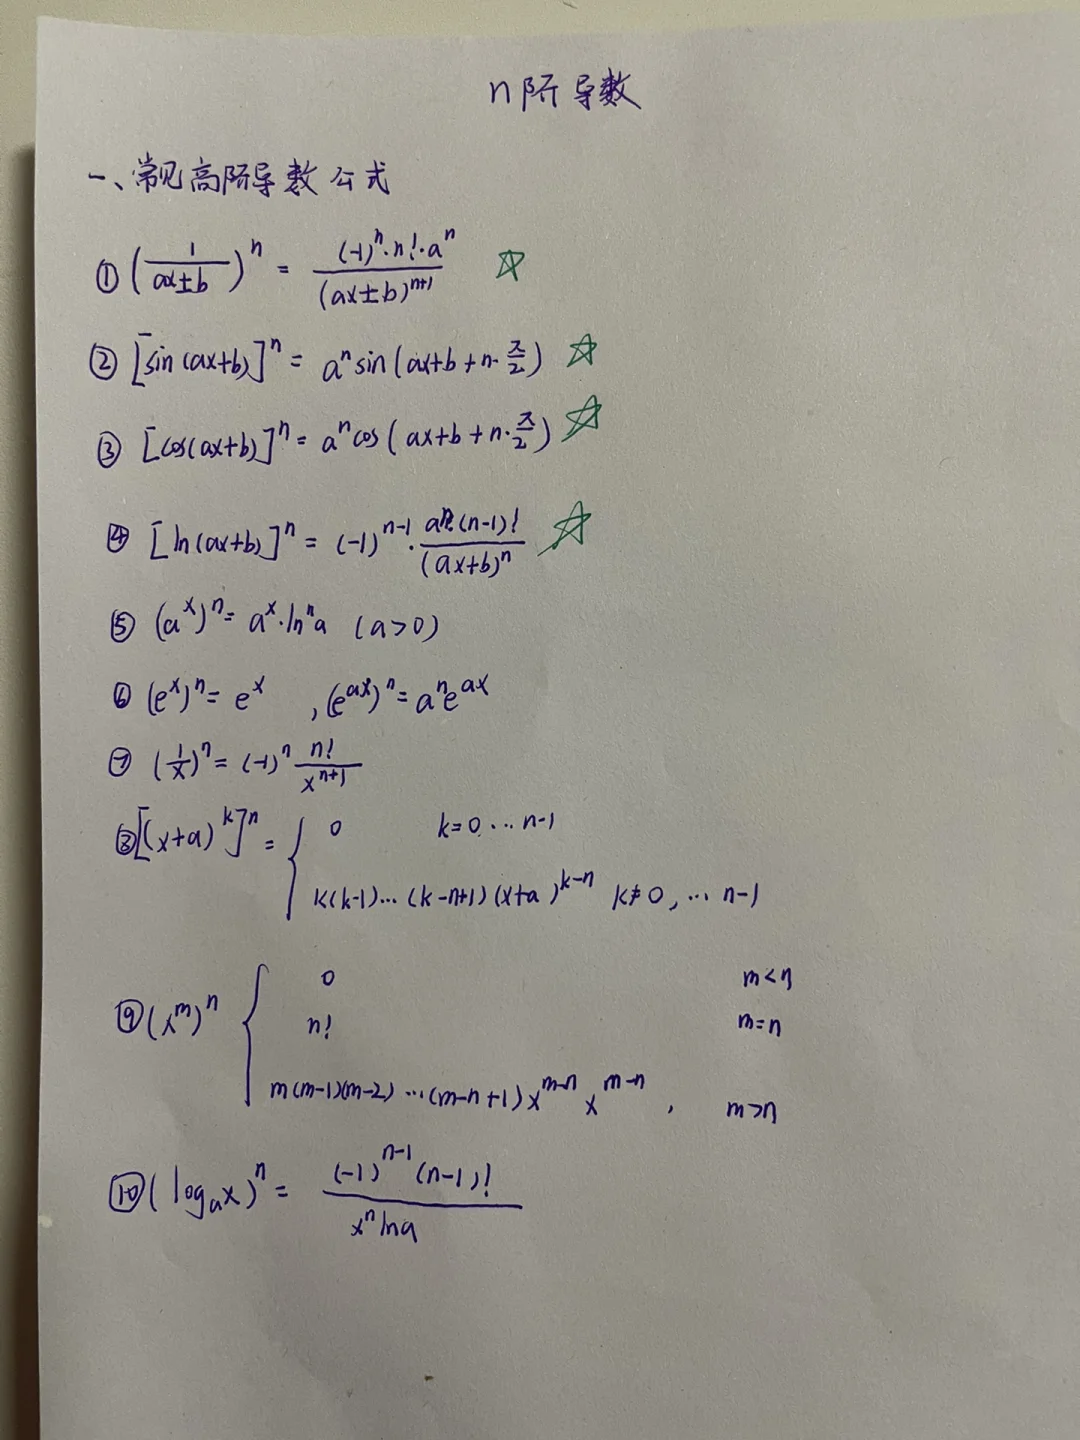 n阶导数
一、常见高阶导数公式
① (1/(ax±b))^n = ((-1)^n·n!·a^n)/((ax±b)^(n+1)) ☆
② [sin(ax+b)]^n = a^n sin(ax+b+n·π/2) ☆
③ [cos(ax+b)]^n = a^n cos(ax+b+n·π/2) ☆
④ [ln(ax+b)]^n = (-1)^(n-1)·(a^n·(n-1)!)/((ax+b)^n) ☆
⑤ (a^x)^n = a^x·ln^n a (a>0)
⑥ (e^x)^n = e^x , (e^(ax))^n = a^n e^(ax)
⑦ (1/x)^n = (-1)^n n!/x^(n+1)
⑧ [(x+a)^k]^n = { 0 k=0…n-1
k(k-1)…(k-n+1)(x+a)^(k-n) k≠0,…n-1
⑨ (x^m)^n { 0 m<n
n! m=n
m(m-1)(m-2)…(m-n+1)x^(m-n) x^(m-n), m>n
⑩ (log_a x)^n = ((-1)^(n-1)(n-1)!)/(x^n ln a)